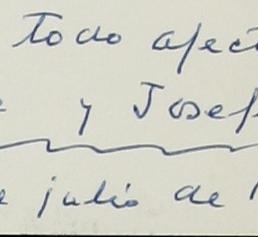 Todo afect
y Josef
e julio de 1